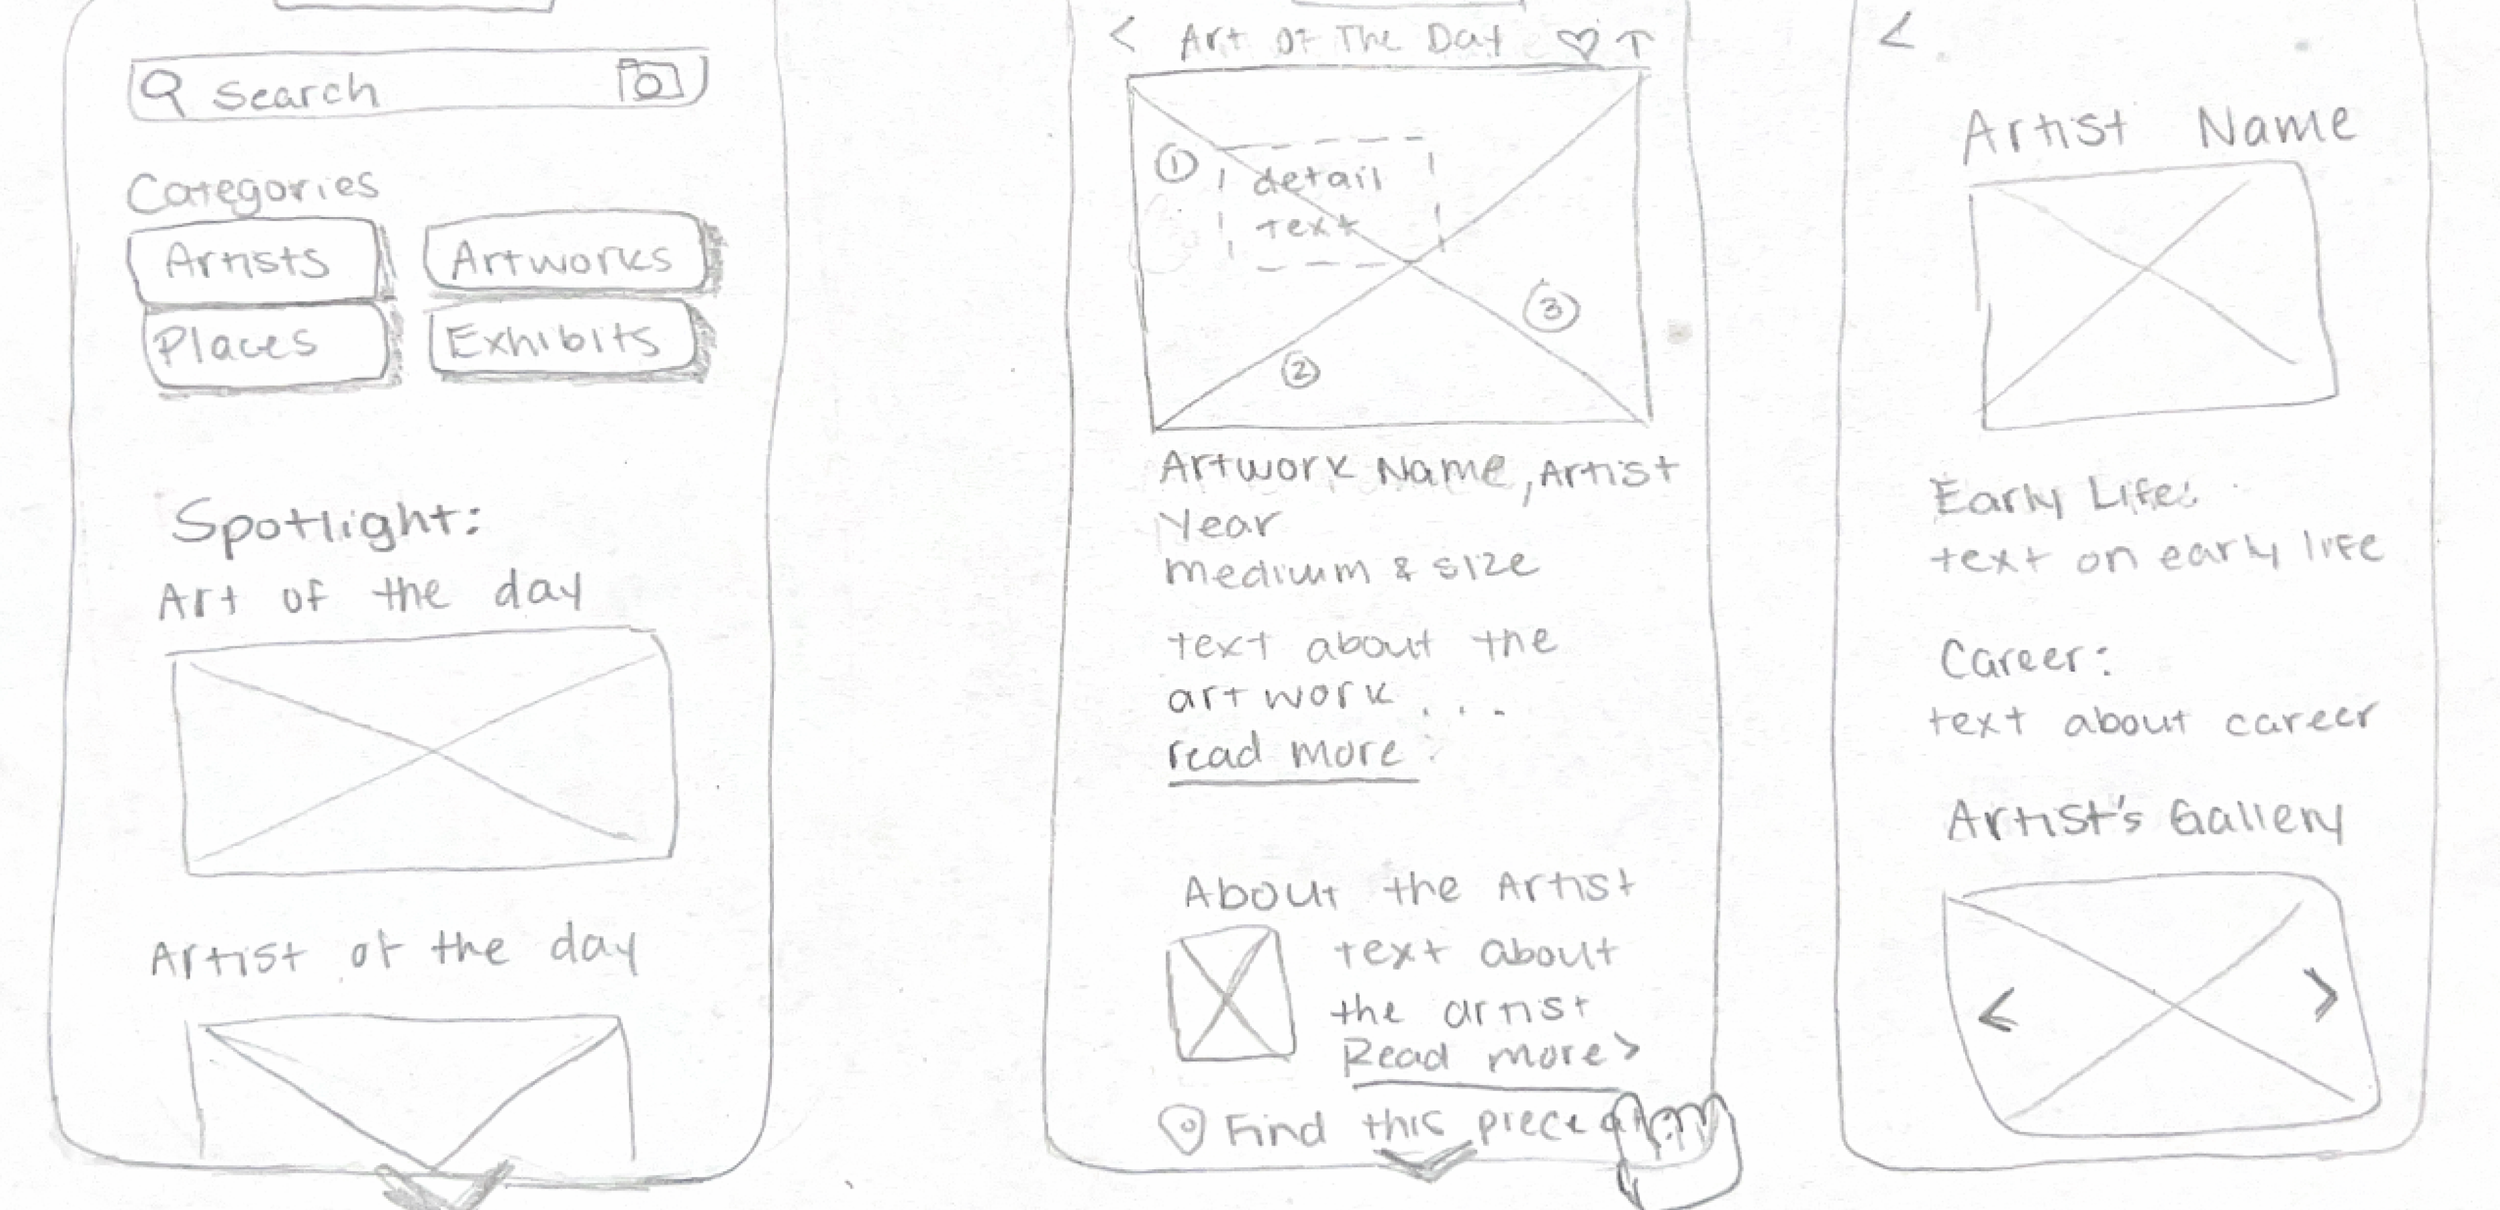 Search
Categories
Artists
Artworks
Places
Exhibits
Spotlight:
Art of the day
Artist of the day
< Art Of The Day
1
detail
text
2
3
Artwork Name, Artist
Year
medium & size
text about the
artwork...
read more
About the Artist
text about
the artist
Read more >
Find this piece
<
Artist Name
Early Life:
text on early life
Career:
text about career
Artist's Gallery
< >